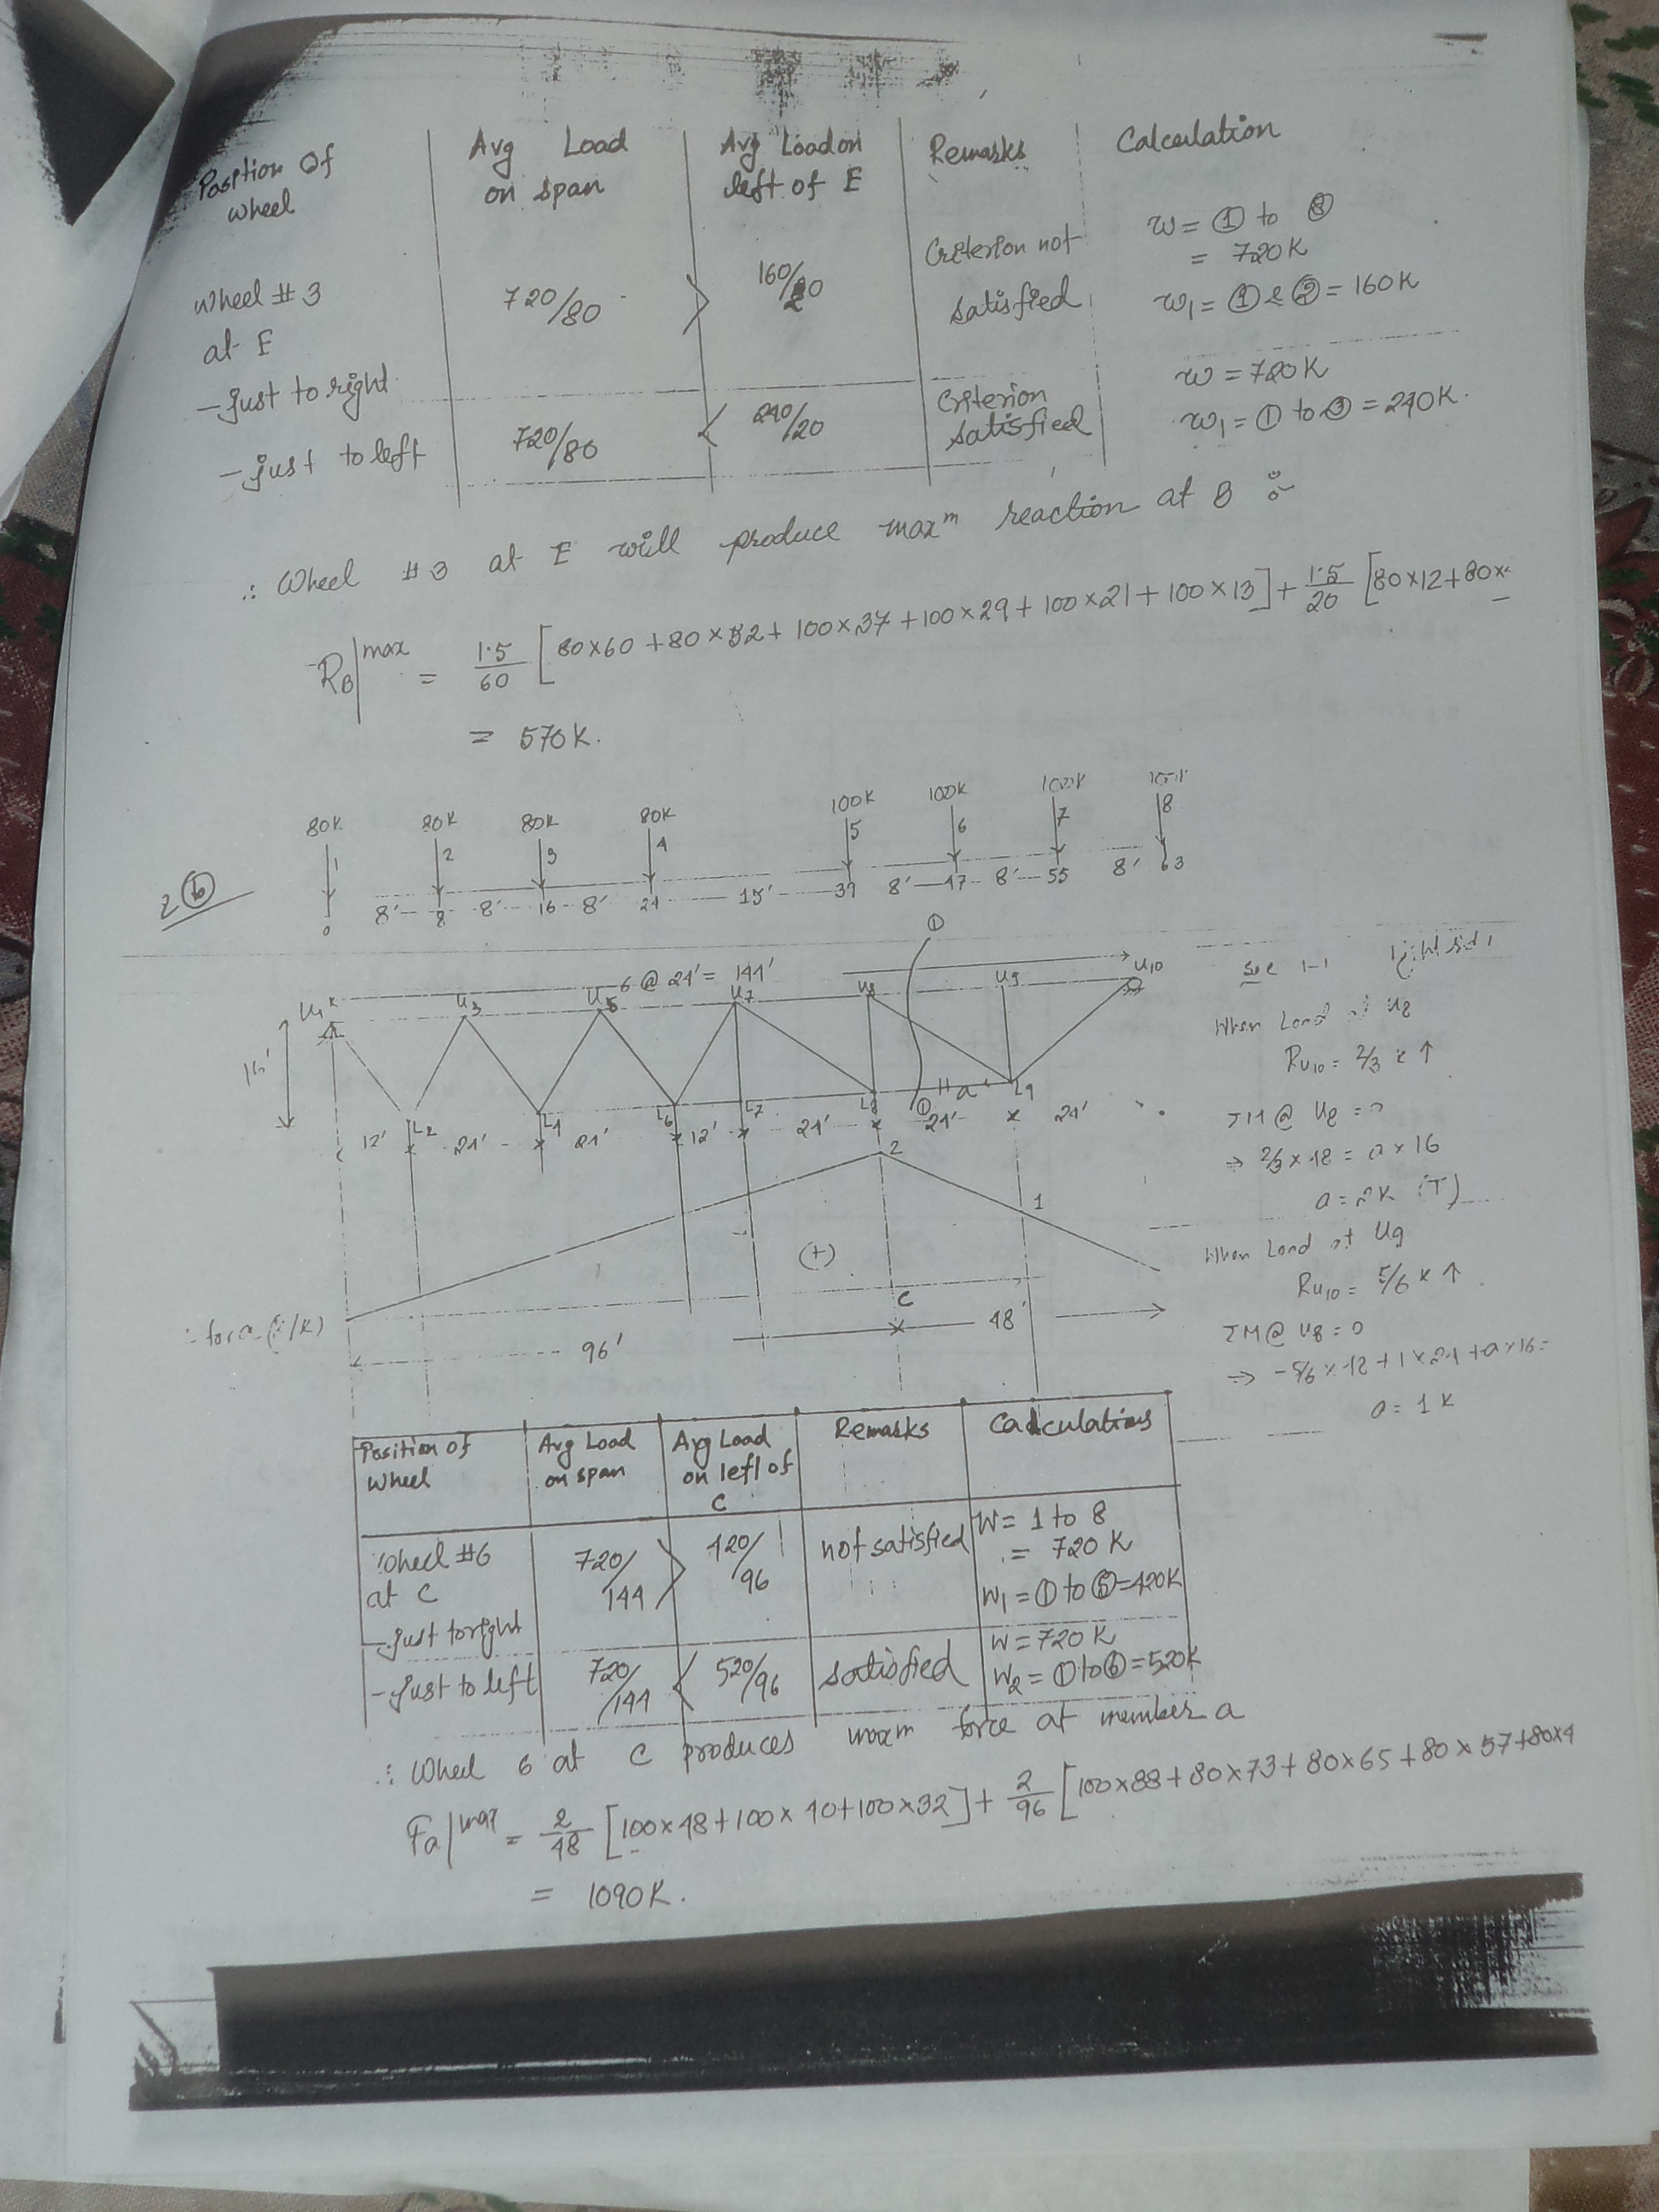 Position Of wheel | Avg Load on span | Avg Load on left of E | Remarks | Calculation
Wheel #3 at E
- just to right | 720/80 > 160/20 | Criterion not satisfied | W = ① to ⑧ = 720K
W₁ = ① & ② = 160K
- just to left | 720/80 < 240/20 | Criterion satisfied | W = 720K
W₁ = ① to ③ = 240K.
∴ Wheel #3 at E will produce maxᵐ reaction at B :-
R_B|max = 1.5/60 [80×60 + 80×52 + 100×37 + 100×29 + 100×21 + 100×13] + 1.5/20 [80×12 + 80×
= 570K.
80K 80K 80K 80K 100K 100K 100K
1 2 3 4 5 6 7 8
2 (b)
0 8' 8 8' 16 8' 24 15' 39 8' 47 8' 55 8' 63
①
6 @ 24' = 144'
U₁ U₃ U₅ U₇ U₈ U₉ U₁₀
16'
L₂ L₄ L₆ L₇ L₈ ① "a" L₉
12' 24' 24' 12' 24' 24' 24'
2
1
(+)
C
for a (K/K)
96' 48'
Sec 1-1 right side
When Load at U₈
R_U10 = 2/3 K ↑
ΣM @ U₈ = 0
⇒ 2/3 × 48 = a × 16
a = 2K (T)
When Load at U₉
R_U10 = 5/6 K ↑
ΣM @ U₈ = 0
⇒ -5/6 × 48 + 1×24 + a×16 =
a = 1 K
Position of Wheel | Avg Load on span | Avg Load on left of C | Remarks | Calculations
Wheel #6 at C
- just to right | 720/144 > 420/96 | not satisfied | W = 1 to 8 = 720 K
W₁ = ① to ⑤ = 420K
- just to left | 720/144 < 520/96 | satisfied | W = 720 K
W₂ = ① to ⑥ = 520K
∴ Wheel 6 at C produces maxᵐ force at member a
Fa|max = 2/48 [100×48 + 100×40 + 100×32] + 2/96 [100×88 + 80×73 + 80×65 + 80×57 + 80×4
= 1090K.